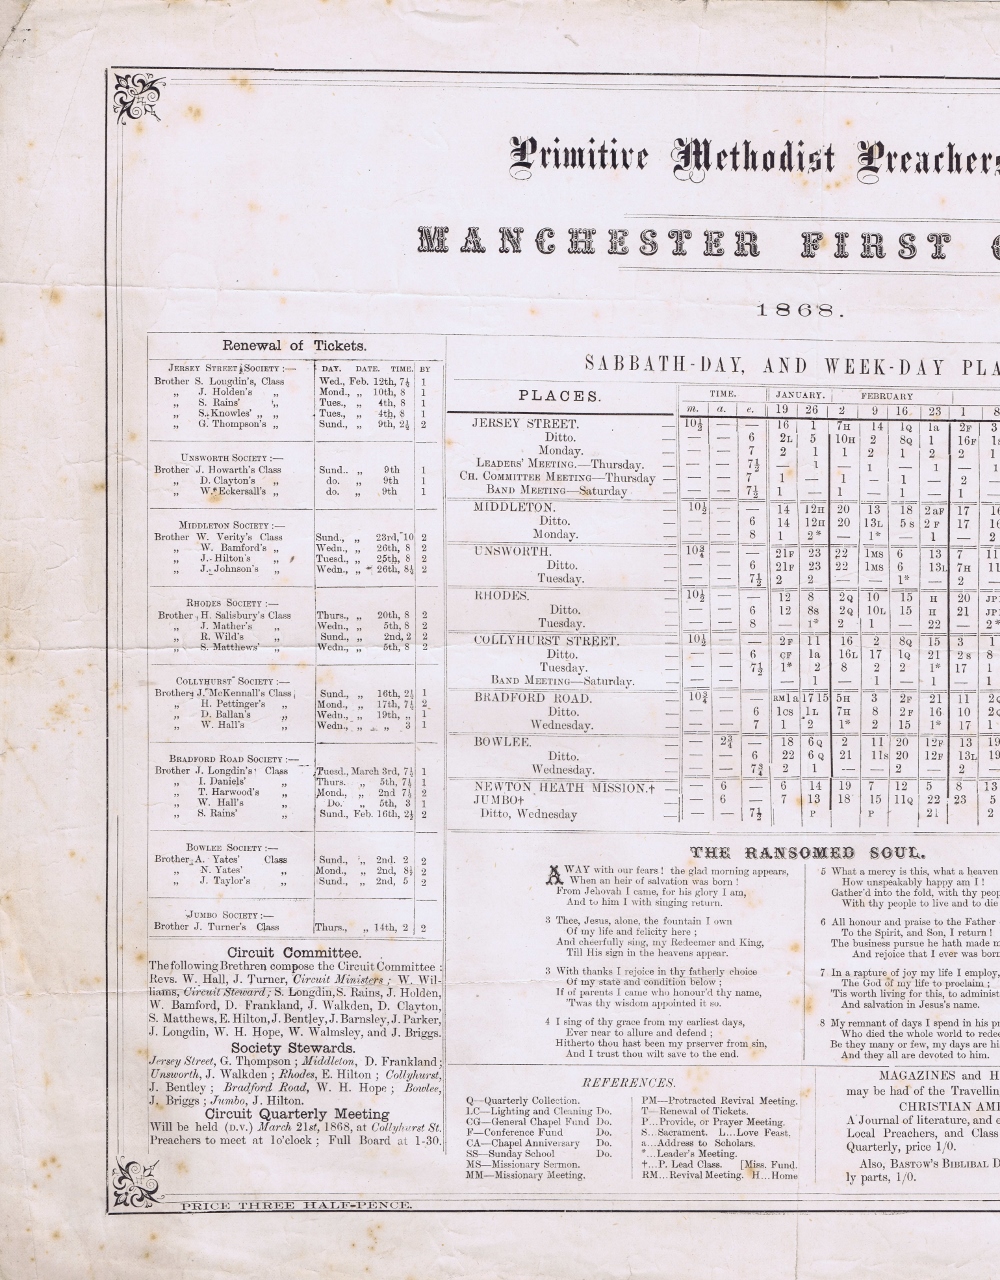 Primitive Methodist Preachers
MANCHESTER FIRST
1868.
Renewal of Tickets.
JERSEY STREET SOCIETY :— DAY. DATE. TIME. BY
Brother S. Longdin's, Class Wed., Feb. 12th, 7½ 1
„ J. Holden's „ Mond., „ 10th, 8 1
„ S. Rains' „ Tues., „ 4th, 8 1
„ S. Knowles' „ „ Tues., „ 4th, 8 1
„ G. Thompson's „ Sund., „ 9th, 2½ 2
UNSWORTH SOCIETY :—
Brother J. Howarth's Class Sund.. „ 9th 1
„ D. Clayton's „ do. „ 9th 1
„ W. Eckersall's „ do. „ 9th 1
MIDDLETON SOCIETY :—
Brother W. Verity's Class Sund., „ 23rd, 10 2
„ W. Bamford's „ Wedn., „ 26th, 8 2
„ J. Hilton's „ Tuesd., „ 25th, 8 2
„ J. Johnson's „ Wedn., „ 26th, 8½ 2
RHODES SOCIETY :—
Brother H. Salisbury's Class Thurs., „ 20th, 8 2
„ J. Mather's „ Wedn., „ 5th, 8 2
„ R. Wild's „ Sund., „ 2nd, 2 2
„ S. Matthews' „ Wedn., „ 5th, 8 2
COLLYHURST SOCIETY :—
Brother J. McKennall's Class Sund., „ 16th, 2½ 1
„ H. Pettinger's „ Mond., „ 17th, 7½ 2
„ D. Ballan's „ Wedn., „ 19th, „ 1
„ W. Hall's „ Wedn., „ „ 3 1
BRADFORD ROAD SOCIETY :—
Brother J. Longdin's Class Tuesd., March 3rd, 7½ 1
„ I. Daniels' „ Thurs. „ 5th, 7½ 1
„ T. Harwood's „ Mond., „ 2nd 7½ 2
„ W. Hall's „ Do. „ 5th, 3 1
„ S. Rains' „ Sund., Feb. 16th, 2½ 2
BOWLEE SOCIETY :—
Brother A. Yates' Class Sund., „ 2nd. 2 2
„ N. Yates' „ Mond., „ 2nd, 8½ 2
„ J. Taylor's „ Sund., „ 2nd, 5 2
JUMBO SOCIETY :—
Brother J. Turner's Class Thurs., „ 14th, 2 2
Circuit Committee.
The following Brethren compose the Circuit Committee :
Revs. W. Hall, J. Turner, Circuit Ministers ; W. Wil-
liams, Circuit Steward; S. Longdin, S. Rains, J. Holden,
W. Bamford, D. Frankland, J. Walkden, D. Clayton,
S. Matthews, E. Hilton, J. Bentley, J. Barnsley, J. Parker,
J. Longdin, W. H. Hope, W. Walmsley, and J. Briggs.
Society Stewards.
Jersey Street, G. Thompson ; Middleton, D. Frankland ;
Unsworth, J. Walkden ; Rhodes, E. Hilton ; Collyhurst,
J. Bentley ; Bradford Road, W. H. Hope ; Bowlee,
J. Briggs ; Jumbo, J. Hilton.
Circuit Quarterly Meeting
Will be held (D.V.) March 21st, 1868, at Collyhurst St.
Preachers to meet at 1o'clock ; Full Board at 1-30.
PRICE THREE HALF-PENCE.
SABBATH-DAY, AND WEEK-DAY
PLACES. TIME. JANUARY. FEBRUARY
m. a. e. 19 26 2 9 16 23 1 8
JERSEY STREET. 10½ — — 16 1 7H 14 1Q 1a 2F 3
Ditto. — — 6 2L 5 10H 2 8Q 1 16F
Monday. — — 7 2 1 1 2 1 2 2 1
LEADERS' MEETING.—Thursday. — — 7½ — 1 — 1 — 1 — 1
CH. COMMITTEE MEETING—Thursday — — 7 1 — 1 — 1 — 2
BAND MEETING—Saturday — — 7½ 1 — 1 — 1 — 1 —
MIDDLETON. 10½ — — 14 12H 20 13 18 2aF 17
Ditto. — — 6 14 12H 20 13L 5s 2F 17
Monday. — — 8 1 2* — 1* — 1 — 2
UNSWORTH. 10¾ — — 21F 23 22 1MS 6 13 7 11
Ditto. — — 6 21F 23 22 1MS 6 13L 7H 11
Tuesday. — — 7½ 2 2 — — 1* — 2 —
RHODES. 10½ — — 12 8 2Q 10 15 H 20
Ditto. — — 6 12 8s 2Q 10L 15 H 21
Tuesday. — — 8 — 1* 2 1 — 22 — 2*
COLLYHURST STREET. 10½ — — 2F 11 16 2 8Q 15 3 1
Ditto. — — 6 CF 1a 16L 17 1Q 21 2s 8
Tuesday. — — 7½ 1* 2 8 2 2 1* 17 1
BAND MEETING—Saturday. — — — — 1 — 1 — 1 — 1
BRADFORD ROAD. 10¾ — — RM1a 17 15 5H 3 2F 21 11
Ditto. — — 6 1cs 1L 7H 8 2F 16 10
Wednesday. — — 7 1 2 1* 2 15 1* 17 1
BOWLEE. — 2¾ — 18 6Q 2 11 20 12F 13 19
Ditto. — — 6 22 6Q 21 11s 20 12F 13L 19
Wednesday. — — 7¾ 2 1 — — 2 — 2 —
NEWTON HEATH MISSION.† — 6 — 6 14 19 7 12 5 8 13
JUMBO† — 6 — 7 13 18 15 11Q 22 23 5
Ditto, Wednesday — — 7½ P P 21 2
THE RANSOMED SOUL.
AWAY with our fears ! the glad morning appears,
When an heir of salvation was born !
From Jehovah I came, for his glory I am,
And to him I with singing return.
3 Thee, Jesus, alone, the fountain I own
Of my life and felicity here ;
And cheerfully sing, my Redeemer and King,
Till His sign in the heavens appear.
3 With thanks I rejoice in thy fatherly choice
Of my state and condition below ;
If of parents I came who honour'd thy name,
'Twas thy wisdom appointed it so.
4 I sing of thy grace from my earliest days,
Ever near to allure and defend ;
Hitherto thou hast been my prserver from sin,
And I trust thou wilt save to the end.
5 What a mercy is this, what a heaven
How unspeakably happy am I !
Gather'd into the fold, with thy
With thy people to live and to die
6 All honour and praise to the Father
To the Spirit, and Son, I return !
The business pursue he hath made
And rejoice that I ever was
7 In a rapture of joy my life I employ,
The God of my life to proclaim ;
'Tis worth living for this, to
And salvation in Jesus's name.
8 My remnant of days I spend in his
Who died the whole world to
Be they many or few, my days are
And they all are devoted to him.
REFERENCES.
Q—Quarterly Collection.
LC—Lighting and Cleaning Do.
CG—General Chapel Fund Do.
F—Conference Fund Do.
CA—Chapel Anniversary Do.
SS—Sunday School Do.
MS—Missionary Sermon.
MM—Missionary Meeting.
PM—Protracted Revival Meeting.
T—Renewal of Tickets.
P...Provide, or Prayer Meeting.
S...Sacrament. L...Love Feast.
a...Address to Scholars.
*...Leader's Meeting.
†...P. Lead Class. [Miss. Fund.
RM...Revival Meeting. H...Home
MAGAZINES and H
may be had of the Travellin
CHRISTIAN
A Journal of literature, and
Local Preachers, and Class
Quarterly, price 1/0.
Also, BASTOW'S BIBLIBAL D
ly parts, 1/0.